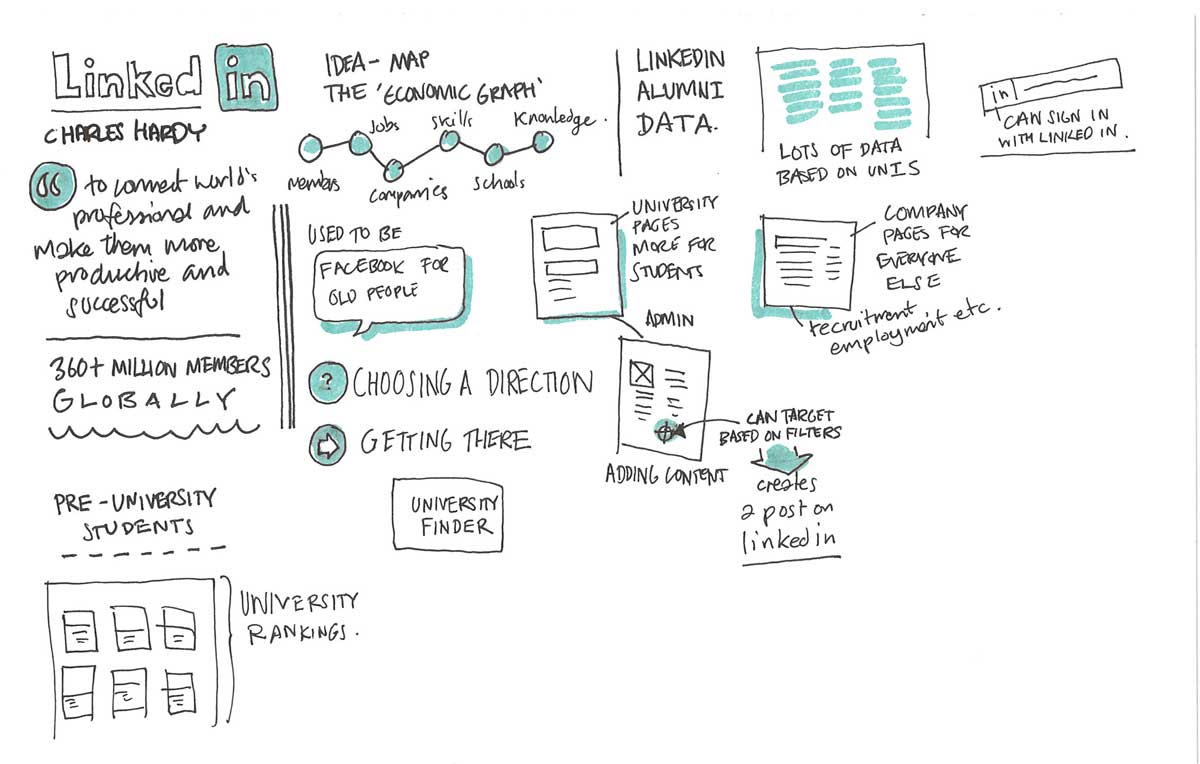 Linked in
CHARLES HARDY
“ to connect world's
professional and
make them more
productive and
successful
360+ MILLION MEMBERS
GLOBALLY
PRE-UNIVERSITY
STUDENTS
UNIVERSITY
RANKINGS.
IDEA- MAP
THE 'ECONOMIC GRAPH'
Jobs
Skills
Knowledge.
Members
Companies
Schools
USED TO BE
FACEBOOK FOR
OLD PEOPLE
? CHOOSING A DIRECTION
GETTING THERE
UNIVERSITY
FINDER
LINKEDIN
ALUMNI
DATA.
UNIVERSITY
PAGES
MORE FOR
STUDENTS
ADMIN
ADDING CONTENT
CAN TARGET
BASED ON FILTERS
creates
a post on
linkedin
LOTS OF DATA
BASED ON UNIS
COMPANY
PAGES FOR
EVERYONE
ELSE
recruitment
employment etc.
in
CAN SIGN IN
WITH LINKED IN.